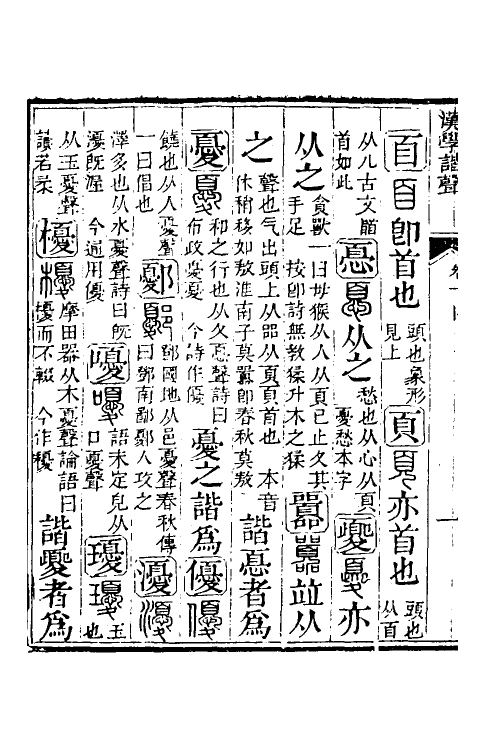 漢學諧聲
𦣻 𦣻 卽首也 頭也象形見上 頁 頁 亦首也 頭也从𦣻
从儿古文𩠐首如此 㥑 㥑 从之 愁也从心从頁憂愁本字 夒 夒 亦
从之 貪獸一曰母猴似人从頁巳止夊其手足 按卽詩無敎猱升木之猱 嚻 嚻 並从
之 聲也气出頭上从㗊从頁頁首也 本音休稍移如敖淮南子莫嚻卽春秋莫敖 諧㥑者爲
憂 憂 和之行也从夊㥑聲詩曰布政憂憂 今詩作優 憂之諧爲 優 優
饒也从人憂聲一曰倡也 鄾 鄾 鄧國地从邑憂聲春秋傳曰鄧南鄙鄾人攻之 瀀 瀀
澤多也从水憂聲詩曰旣瀀旣渥 今通用優 嚘 嚘 語未定皃从口憂聲 瓇 瓇 玉也
从玉夒聲讀若柔 櫌 櫌 摩田器从木憂聲論語曰櫌而不輟 今作耰 諧夒者爲